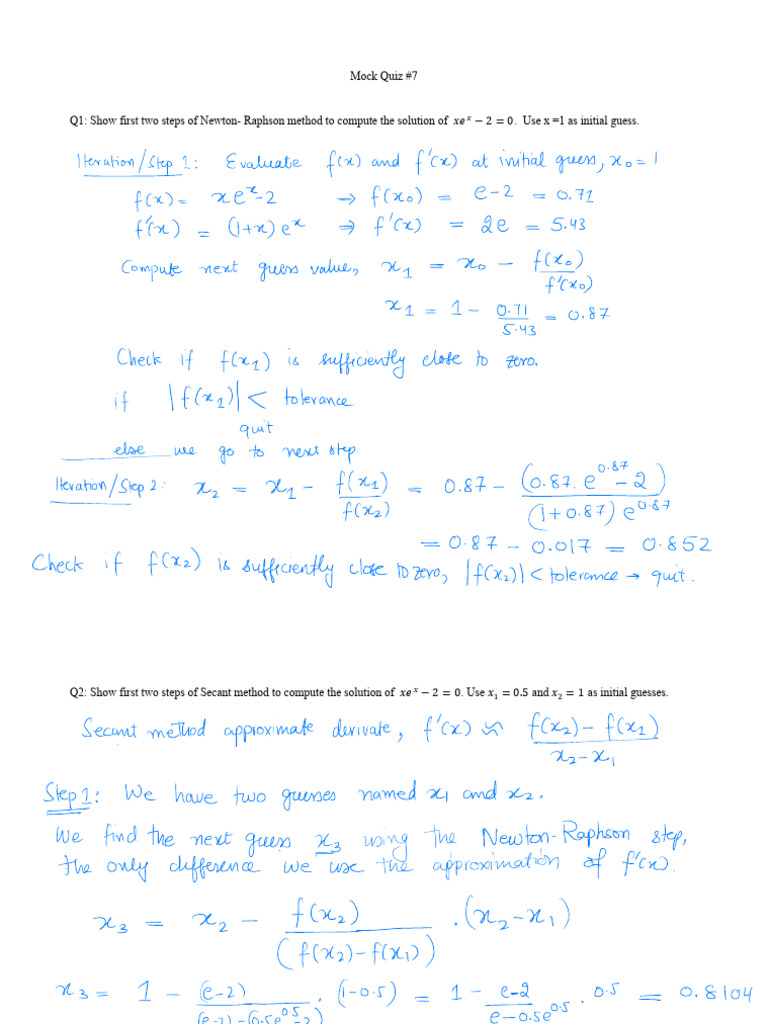 Mock Quiz #7
Q1: Show first two steps of Newton- Raphson method to compute the solution of xeˣ − 2 = 0. Use x =1 as initial guess.
Iteration/Step 1: Evaluate f(x) and f'(x) at initial guess, x₀ = 1
f(x) = xeˣ-2 → f(x₀) = e-2 = 0.71
f'(x) = (1+x) eˣ ⇒ f'(x) = 2e = 5.43
Compute next guess value, x₁ = x₀ − f(x₀)/f'(x₀)
x₁ = 1 − 0.71/5.43 = 0.87
Check if f(x₁) is sufficiently close to zero.
if |f(x₁)| < tolerance
quit
else we go to next step
Iteration/Step 2: x₂ = x₁ − f(x₁)/f(x₂) = 0.87 − (0.87. e^0.87 − 2)/(1+0.87) e^0.87
= 0.87 − 0.017 = 0.852
Check if f(x₂) is sufficiently close to zero, |f(x₂)| < tolerance → quit.
Q2: Show first two steps of Secant method to compute the solution of xeˣ − 2 = 0. Use x₁ = 0.5 and x₂ = 1 as initial guesses.
Secant method approximate derivate, f'(x) ≈ f(x₂) − f(x₁)/x₂−x₁
Step 1: We have two guesses named x₁ and x₂.
We find the next guess x₃ using the Newton-Raphson step,
the only difference we use the approximation of f'(x).
x₃ = x₂ − f(x₂)/(f(x₂)−f(x₁)) .(x₂−x₁)
x₃ = 1 − (e−2)/(e−2)−(0.5e^0.5−2) . (1−0.5) = 1 − e−2/e−0.5e^0.5 . 0.5 = 0.8104